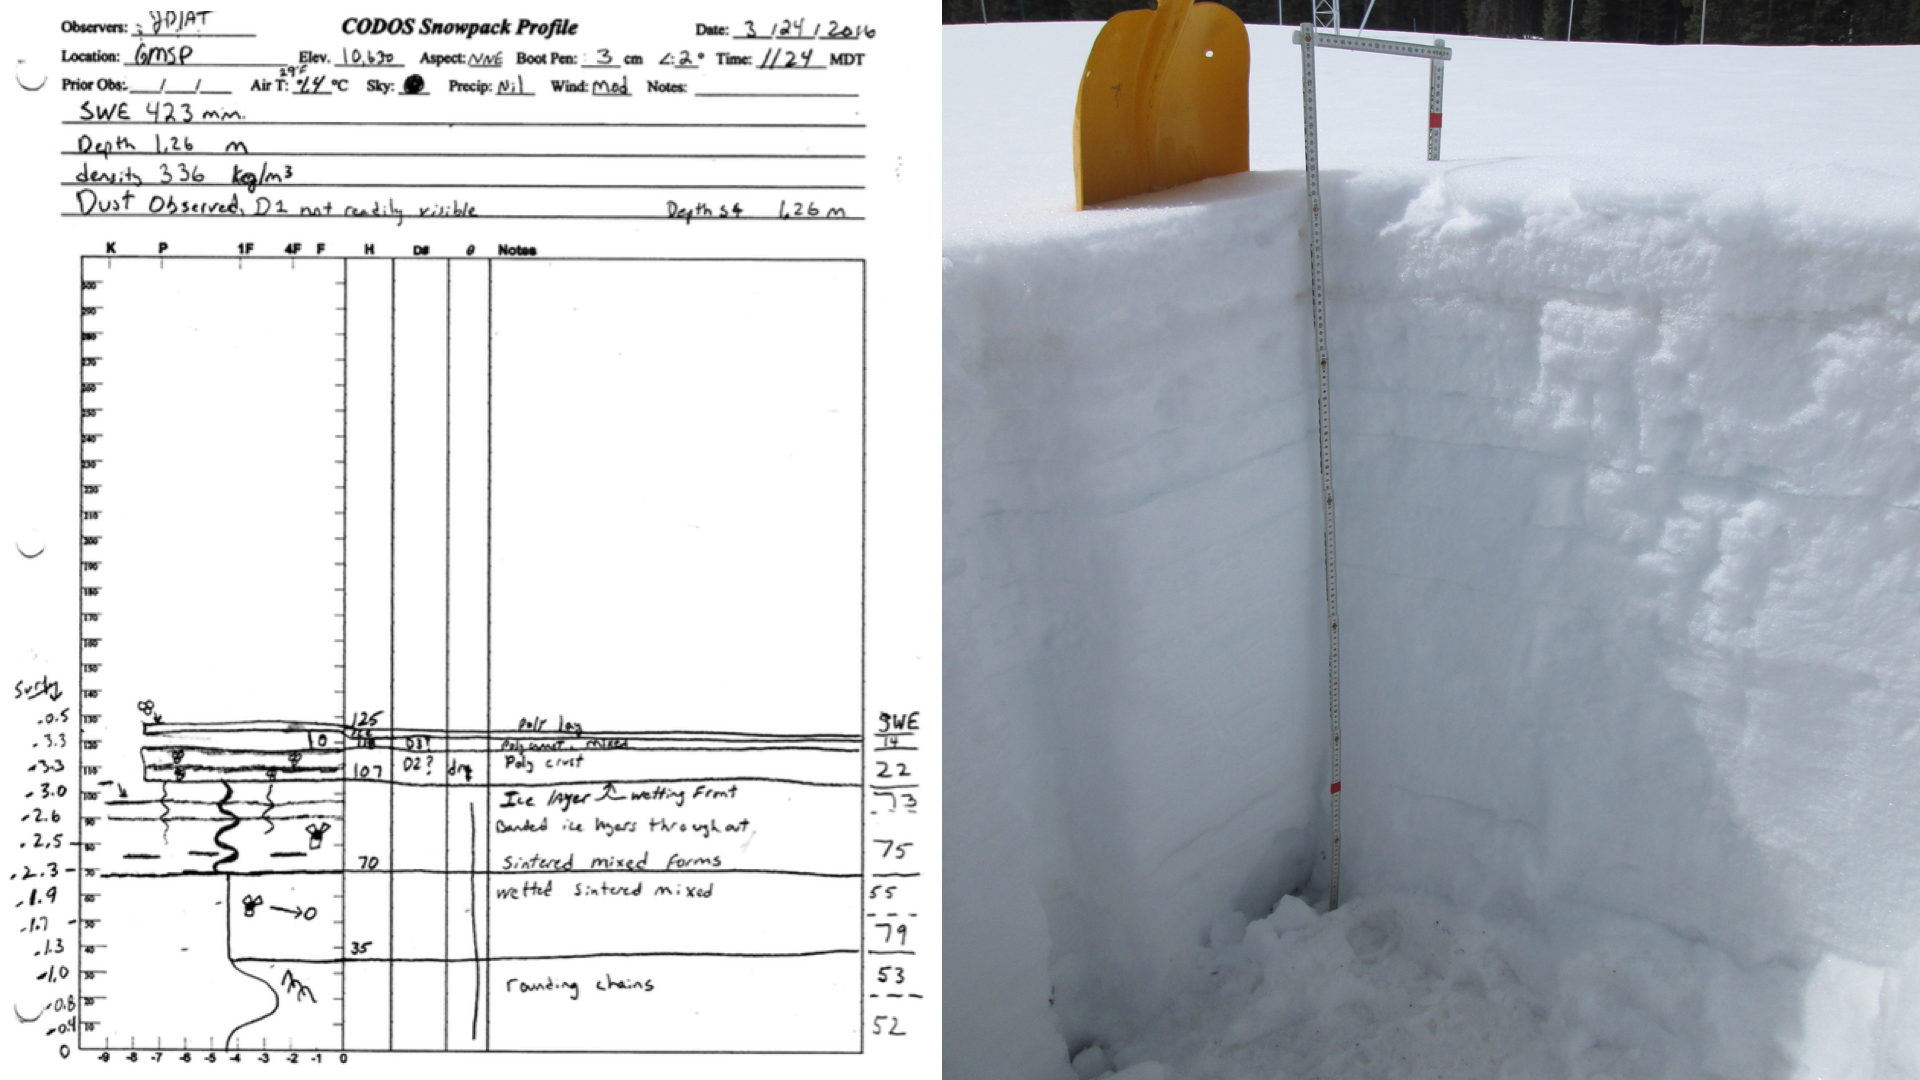 Observers: JD/AT CODOS Snowpack Profile Date: 3 / 24 / 2016
Location: GMSP Elev. 10,630 Aspect: NNE Boot Pen: 3 cm ∠: 2° Time: 1124 MDT
29°F
Prior Obs: __/__/__ Air T: °C Sky: Precip: Nil Wind: Mod Notes:
SWE 423 mm.
Depth 1.26 m
density 336 kg/m3
Dust Observed, D1 not readily visible Depth s4 1.26 m
K P 1F 4F F H D# θ Notes
300
290
280
270
260
250
240
230
220
210
200
190
180
170
160
150
140
-0.5 130 125 SWE
-3.3 120 D3? mixed 14
-3.3 110 107 D2? dry Poly crust 22
-3.0 100 Ice layer wetting Front 73
-2.6 90 Banded ice layers throughout
-2.5 80 75
-2.3 70 70 Sintered mixed forms
-1.9 60 wetted sintered mixed 55
-1.7 50 79
-1.3 40 35
-1.0 30 rounding chains 53
-0.8 20
-0.4 10 52
0
-9 -8 -7 -6 -5 -4 -3 -2 -1 0